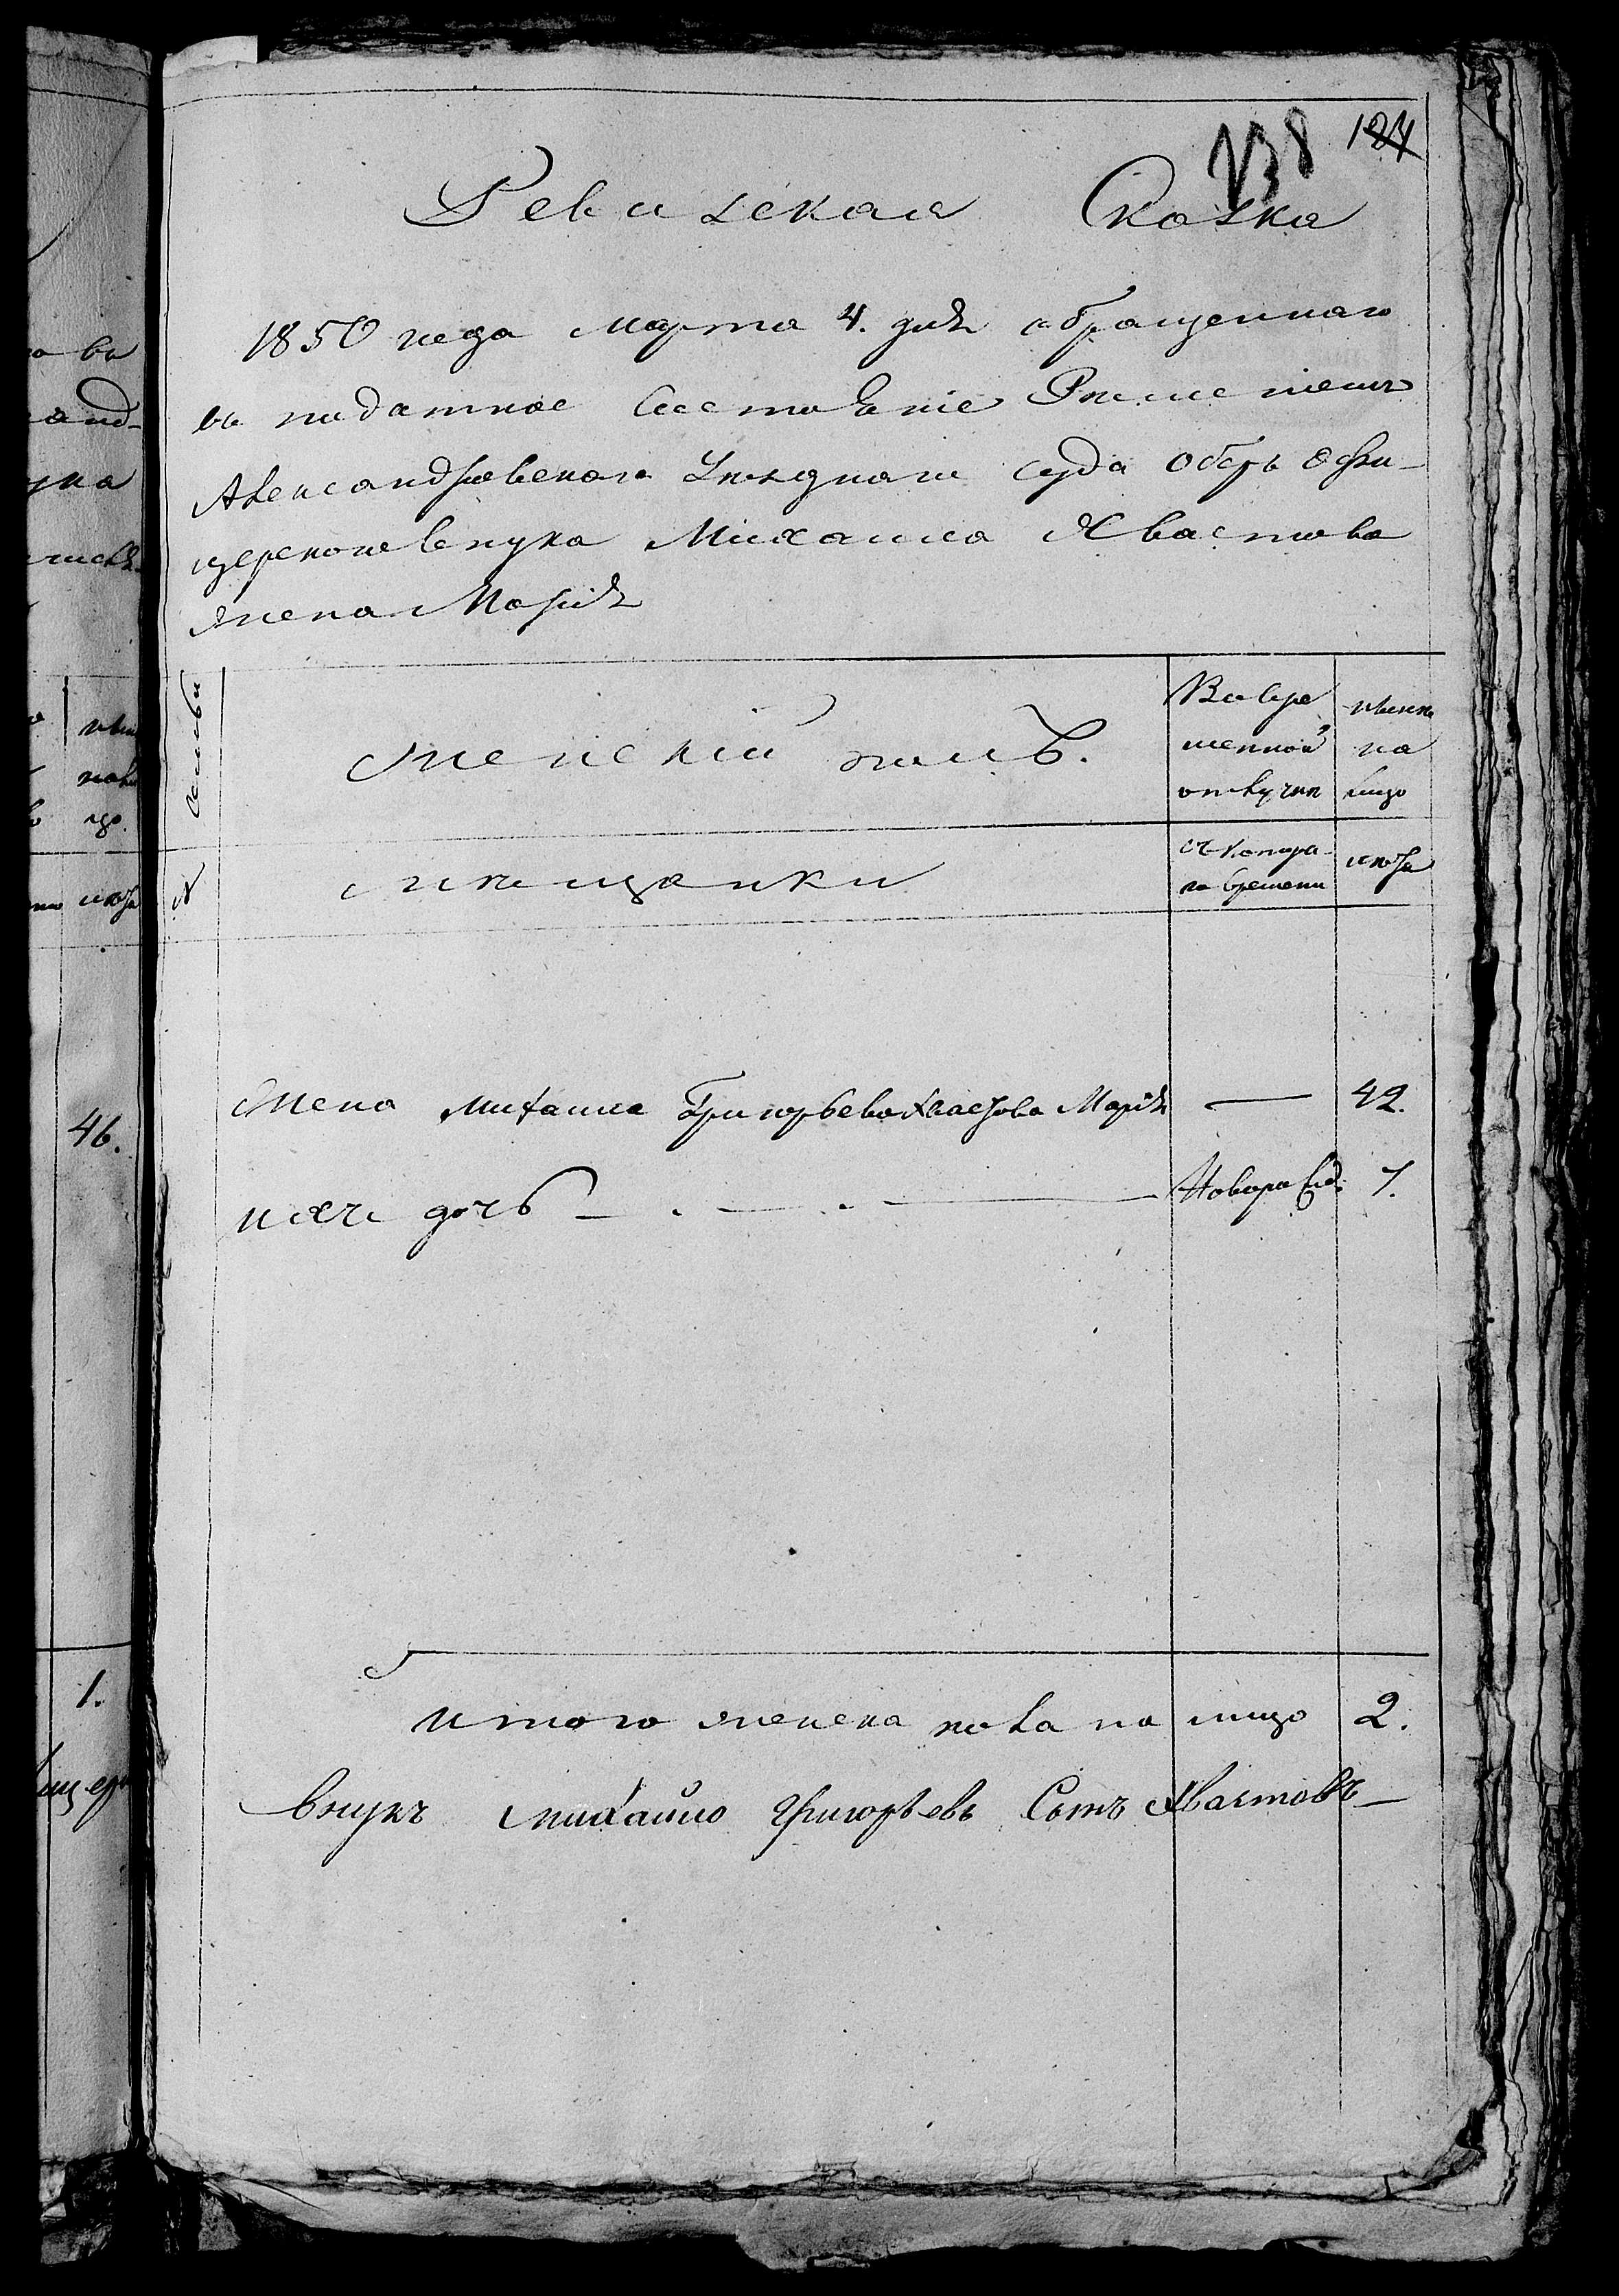 138 124
Ревизская Сказка
1850 года Марта 4. дня обращеннаго
въ податное Состояніе Решеніемъ
Александровскаго Уезднаго Суда Оберъ Офи-
церскаго внука Михаила Хвастова
жена Марія
№ Семьи
Женскій полъ.
Во вре
менной
отлучки
ныне
на
лицо
Мещанки
съ котора-
го времени
лета
Жена Михаила Григорьева Хвастова Марія — 42.
ихъ дочь — Новорожд. 7.
Итого женска пола на лицо 2.
Внукъ Михайло Григорьевъ Сынъ Хвастовъ
46.
1.